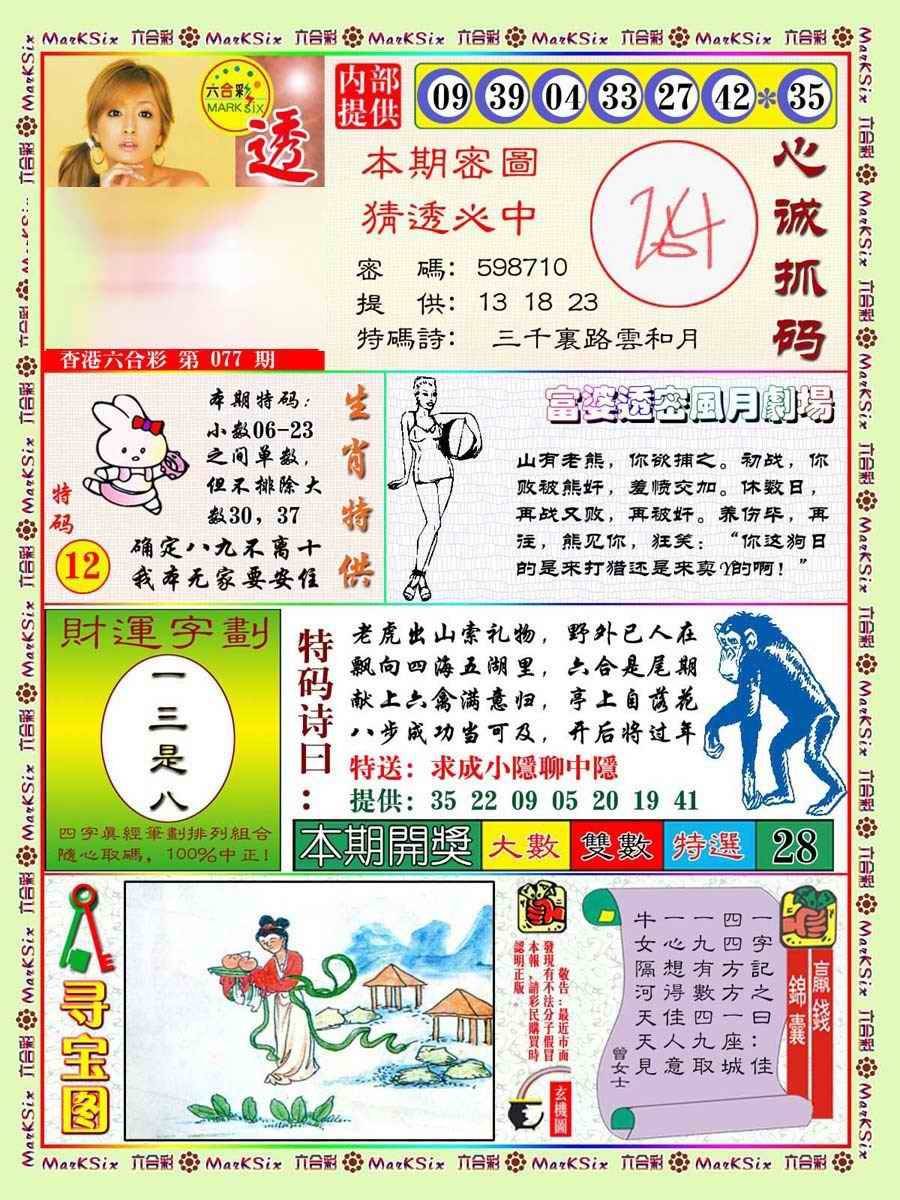 MarKSix 六合彩 MarKSix 六合彩 MarKSix 六合彩 MarKSix 六合彩 MarKSix 六合彩
六合彩
MARK SIX
透
内部
提供
09 39 04 33 27 42 * 35
本期密圖
猜透必中
密 碼: 598710
提 供: 13 18 23
特碼詩: 三千裏路雲和月
心诚抓码
香港六合彩 第 077 期
本期特码:
小数06-23
之间单数,
但不排除大
数30, 37
确定八九不离十
我本无家要安住
特码
12
生肖特供
富婆透密風月劇場
山有老熊, 你欲捕之。初战, 你
败被熊奸, 羞愤交加。休数日,
再战又败, 再被奸。养伤毕, 再
往, 熊见你, 狂笑: “你这狗日
的是来打猎还是来卖Y的啊! ”
財運字劃
一
三
是
八
四字眞經筆劃排列組合
隨心取碼, 100%中正!
特码诗曰:
老虎出山索礼物, 野外已人在
飘向四海五湖里, 六合是尾期
献上六禽满意归, 亭上自落花
八步成功当可及, 开后将过年
特送: 求成小隱聊中隱
提供: 35 22 09 05 20 19 41
本期開獎 大數 雙數 特選 28
寻宝图
敬告:最近市面
發現有不法分子假冒
本報,請彩民購買時
認明正版。
玄機圖
贏錢
錦囊
一字記之曰:佳
四四方方一座城
一九有數四九取
一心想得佳人意
牛女隔河天天見
曾女士
MarKSix 六合彩 MarKSix 六合彩 MarKSix 六合彩 MarKSix 六合彩 MarKSix 六合彩